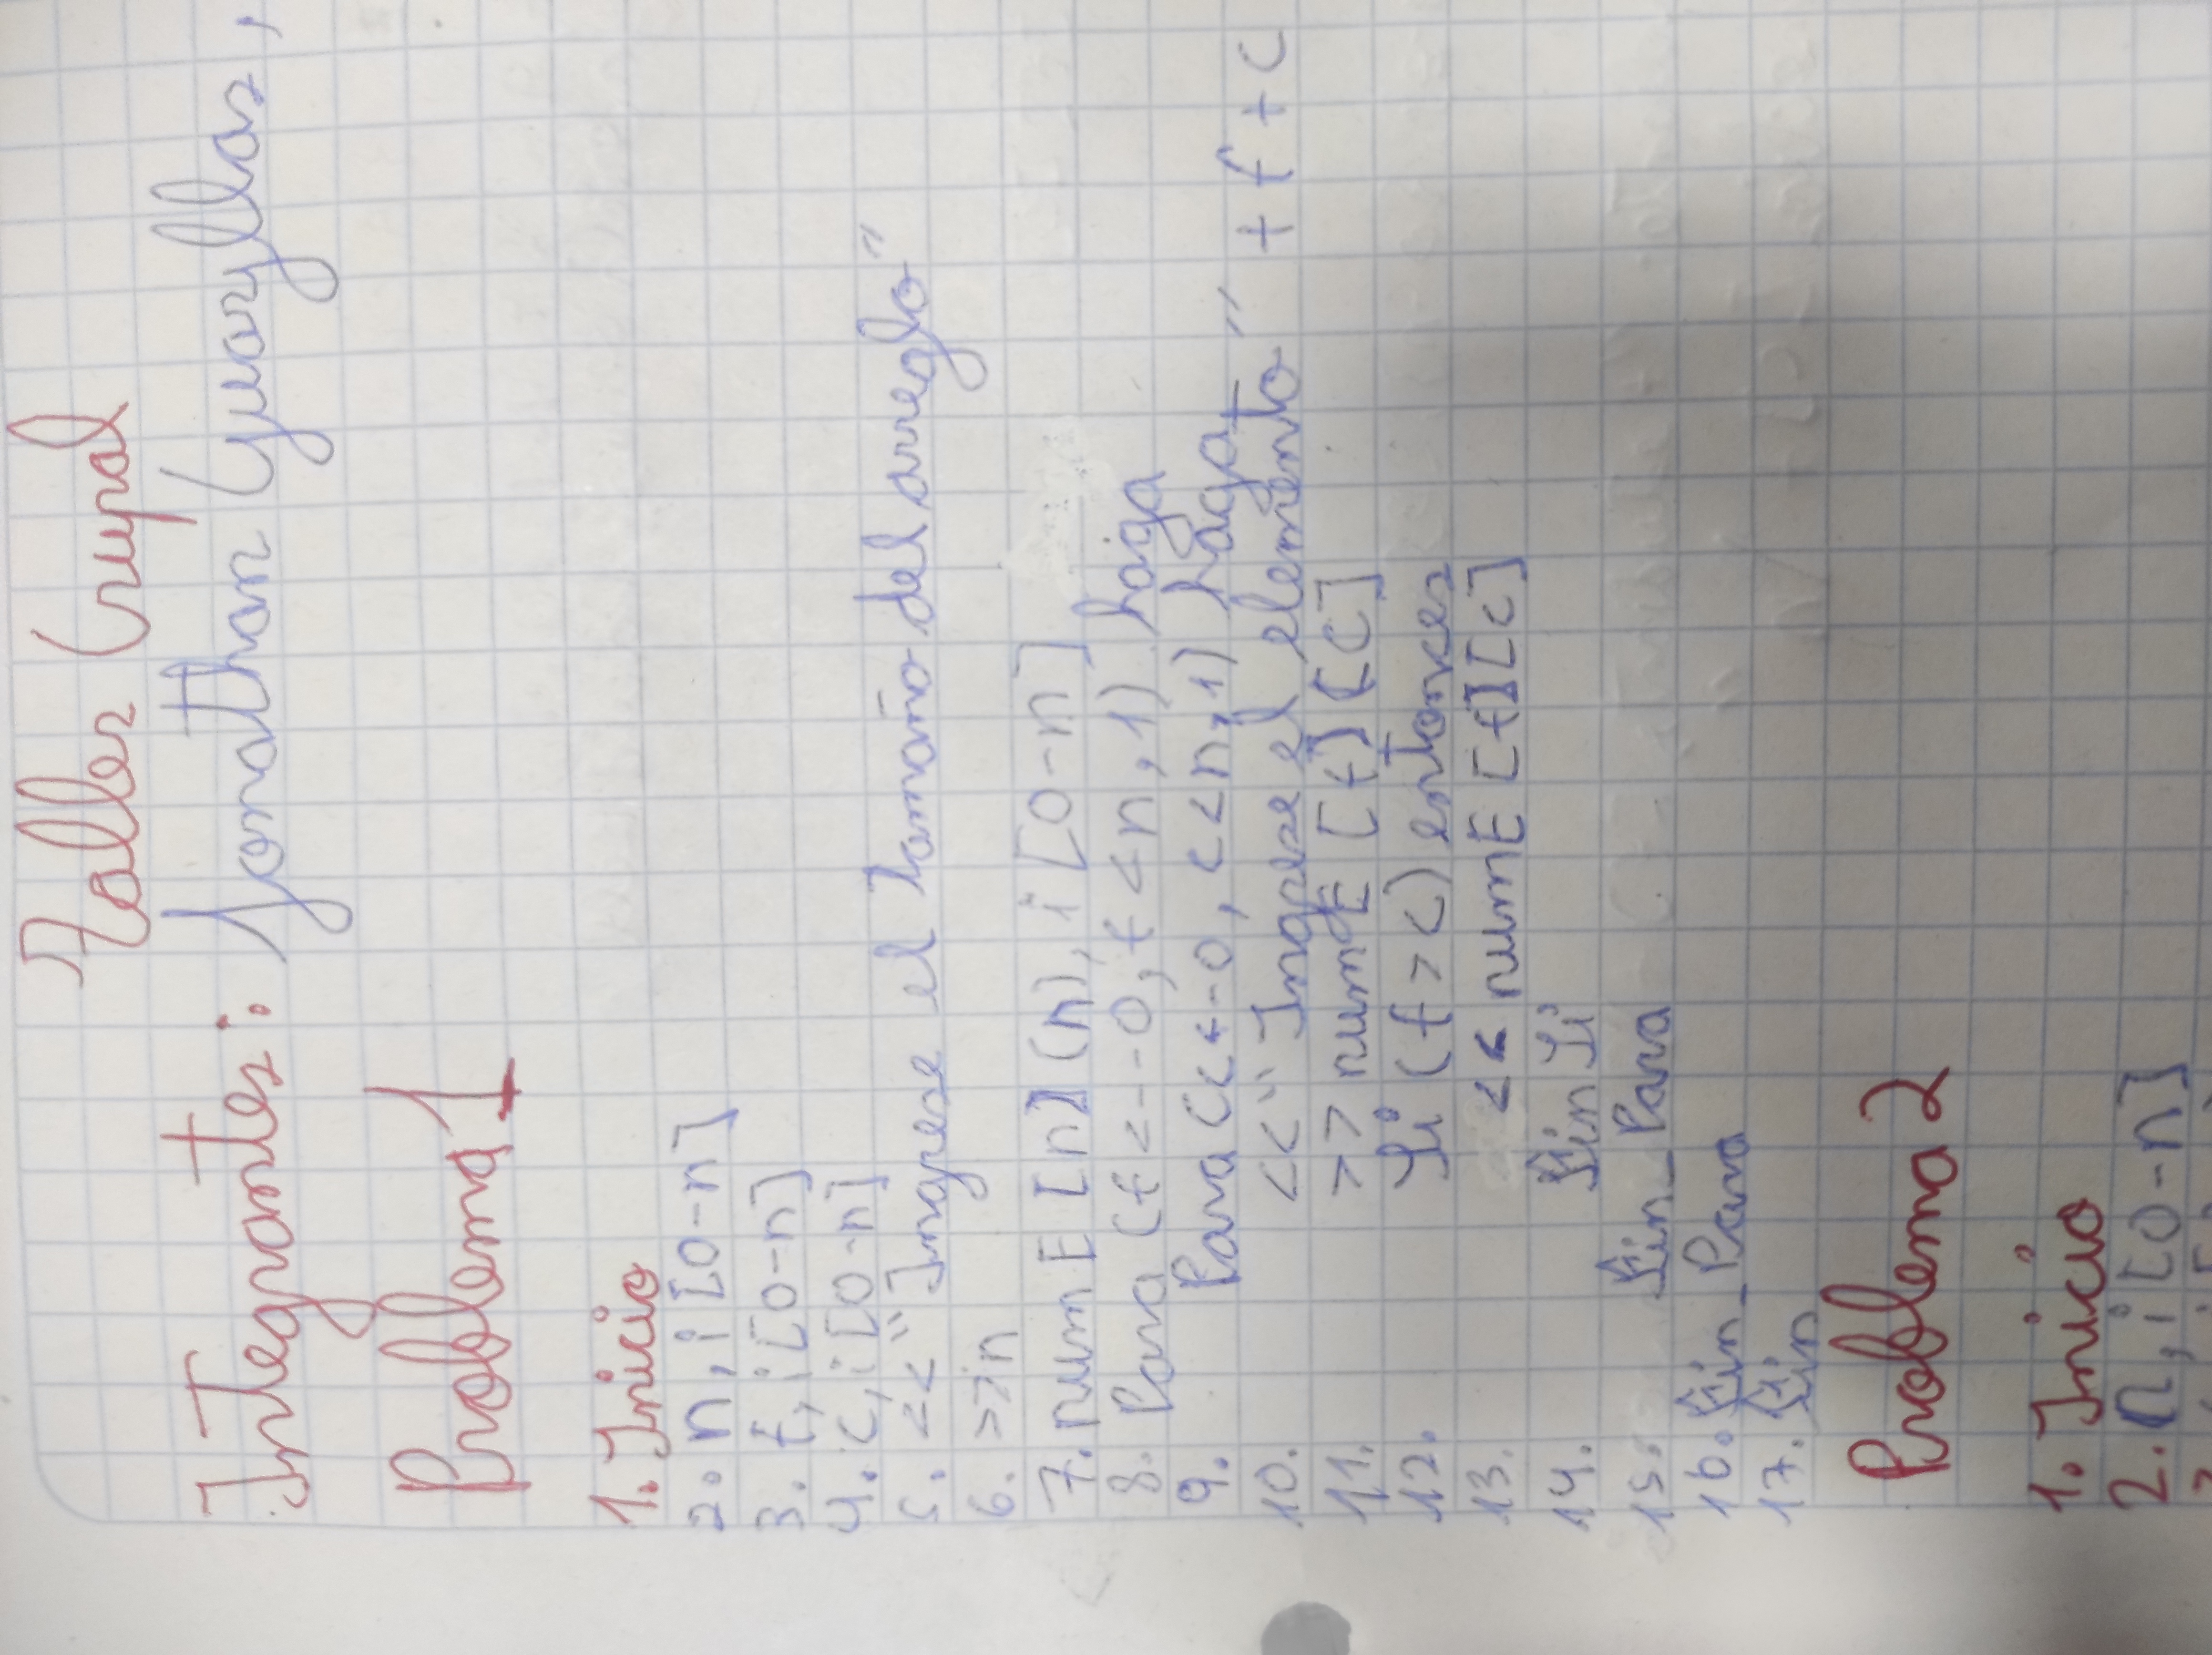 Taller Grupal
Integrantes: Jonathan Guayllas,
Problema 1
1. Inicio
2. n, i [0-n]
3. f, i [0-n]
4. c, i [0-n]
5. << "Ingrese el tamaño del arreglo"
6. >> n
7. numE [n] (n), i [0-n]
8. Para (f <--0, f < n, 1) haga
9. Para (c <-0, c < n, 1) haga
10. << "Ingrese el elemento" + f + c
11. >> numE [f] [c]
12. Si (f > c) entonces
13. << numE [f] [c]
14. Fin Si
15. Fin_Para
16. Fin_Para
17. Fin
Problema 2
1. Inicio
2. n, i [0-n]